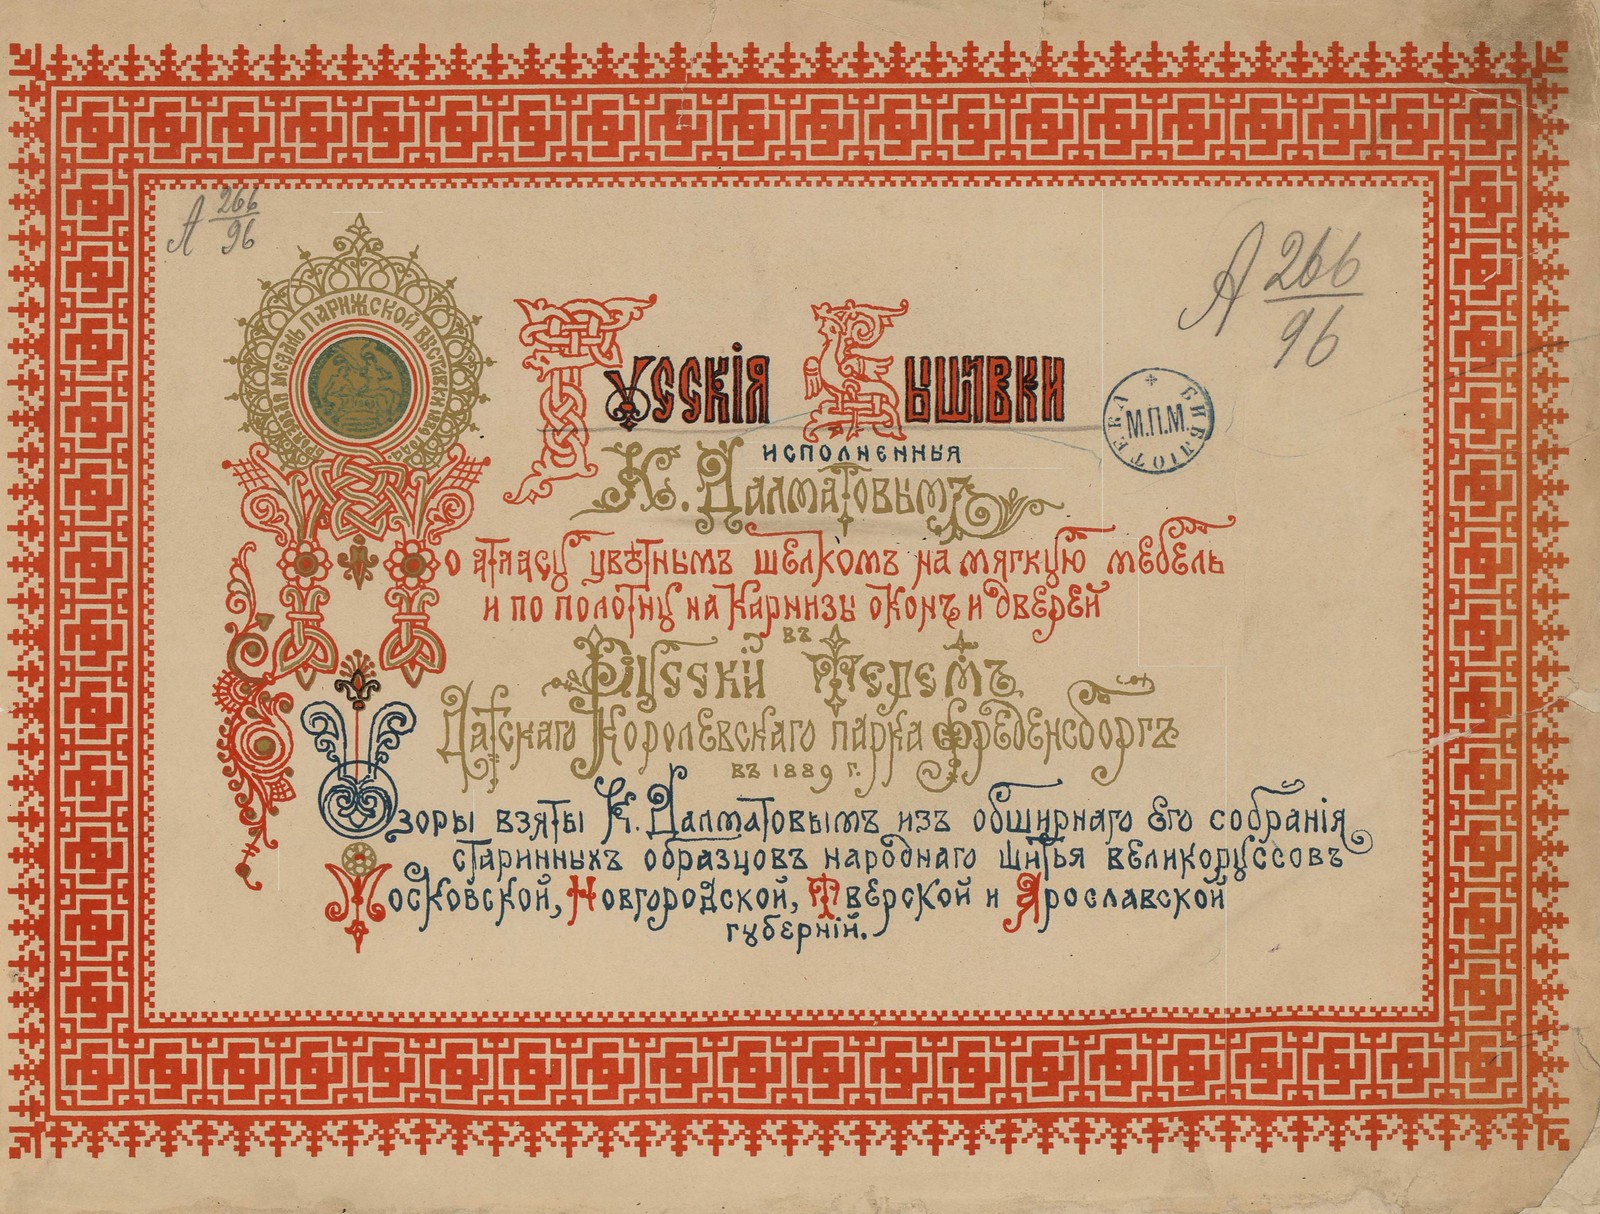 А 266
96
А 266
96
БРОНЗОВАЯ МЕДАЛЬ ПАРИЖСКОЙ ВЫСТАВКИ
Русскія Вышивки
исполненныя
К. Далматовымъ
БИБЛІОТЕКА
М.П.М.
По атласу цвѣтнымъ шелкомъ на мягкую мебель
и по полотну на карнизы оконъ и дверей
въ
Русскій Теремъ
Датскаго Королевскаго парка Фреденсборгъ
въ 1889 г.
Узоры взяты К. Далматовымъ изъ обширнаго его собранія
старинныхъ образцовъ народнаго шитья великоруссовъ
Московской, Новгородской, Тверской и Ярославской
губерній.